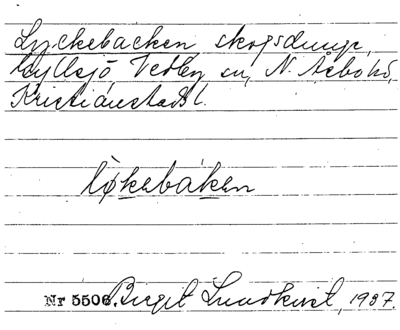 Lyckebacken skogsdunge,
Gyllsjö Vedby sn, N. Åsbo hd,
Kristianstads l.
løkebaken
Nr 5506. Birgit Lundkvist, 1937.